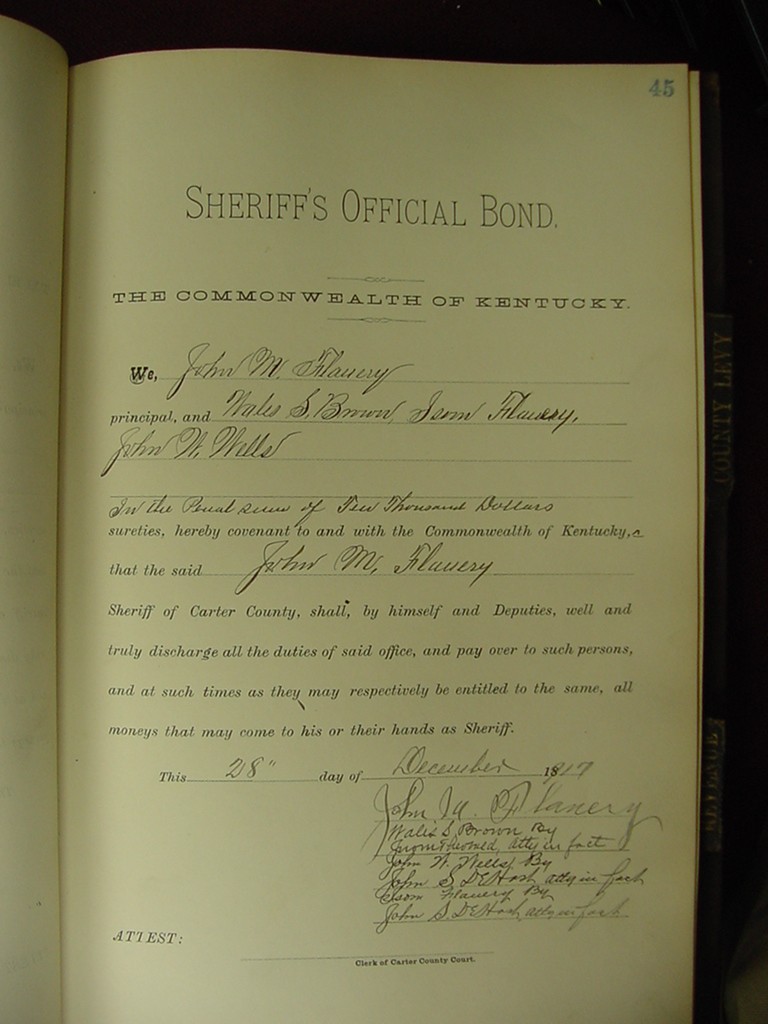 45
SHERIFF'S OFFICIAL BOND.
THE COMMONWEALTH OF KENTUCKY.
We, John M. Flanery
principal, and Wales S. Brown, Isom Flanery,
John W. Wells
In the Penal sum of Ten Thousand Dollars
sureties, hereby covenant to and with the Commonwealth of Kentucky,
that the said John M. Flanery
Sheriff of Carter County, shall, by himself and Deputies, well and
truly discharge all the duties of said office, and pay over to such persons,
and at such times as they may respectively be entitled to the same, all
moneys that may come to his or their hands as Sheriff.
This 28" day of December 1917
John M. Flanery
Wales S. Brown By
atty in fact
John W. Wells By
John S. atty in fact
Isom Flanery By
John S. atty in fact
ATTEST:
Clerk of Carter County Court.
COUNTY LEVY
REVENUE